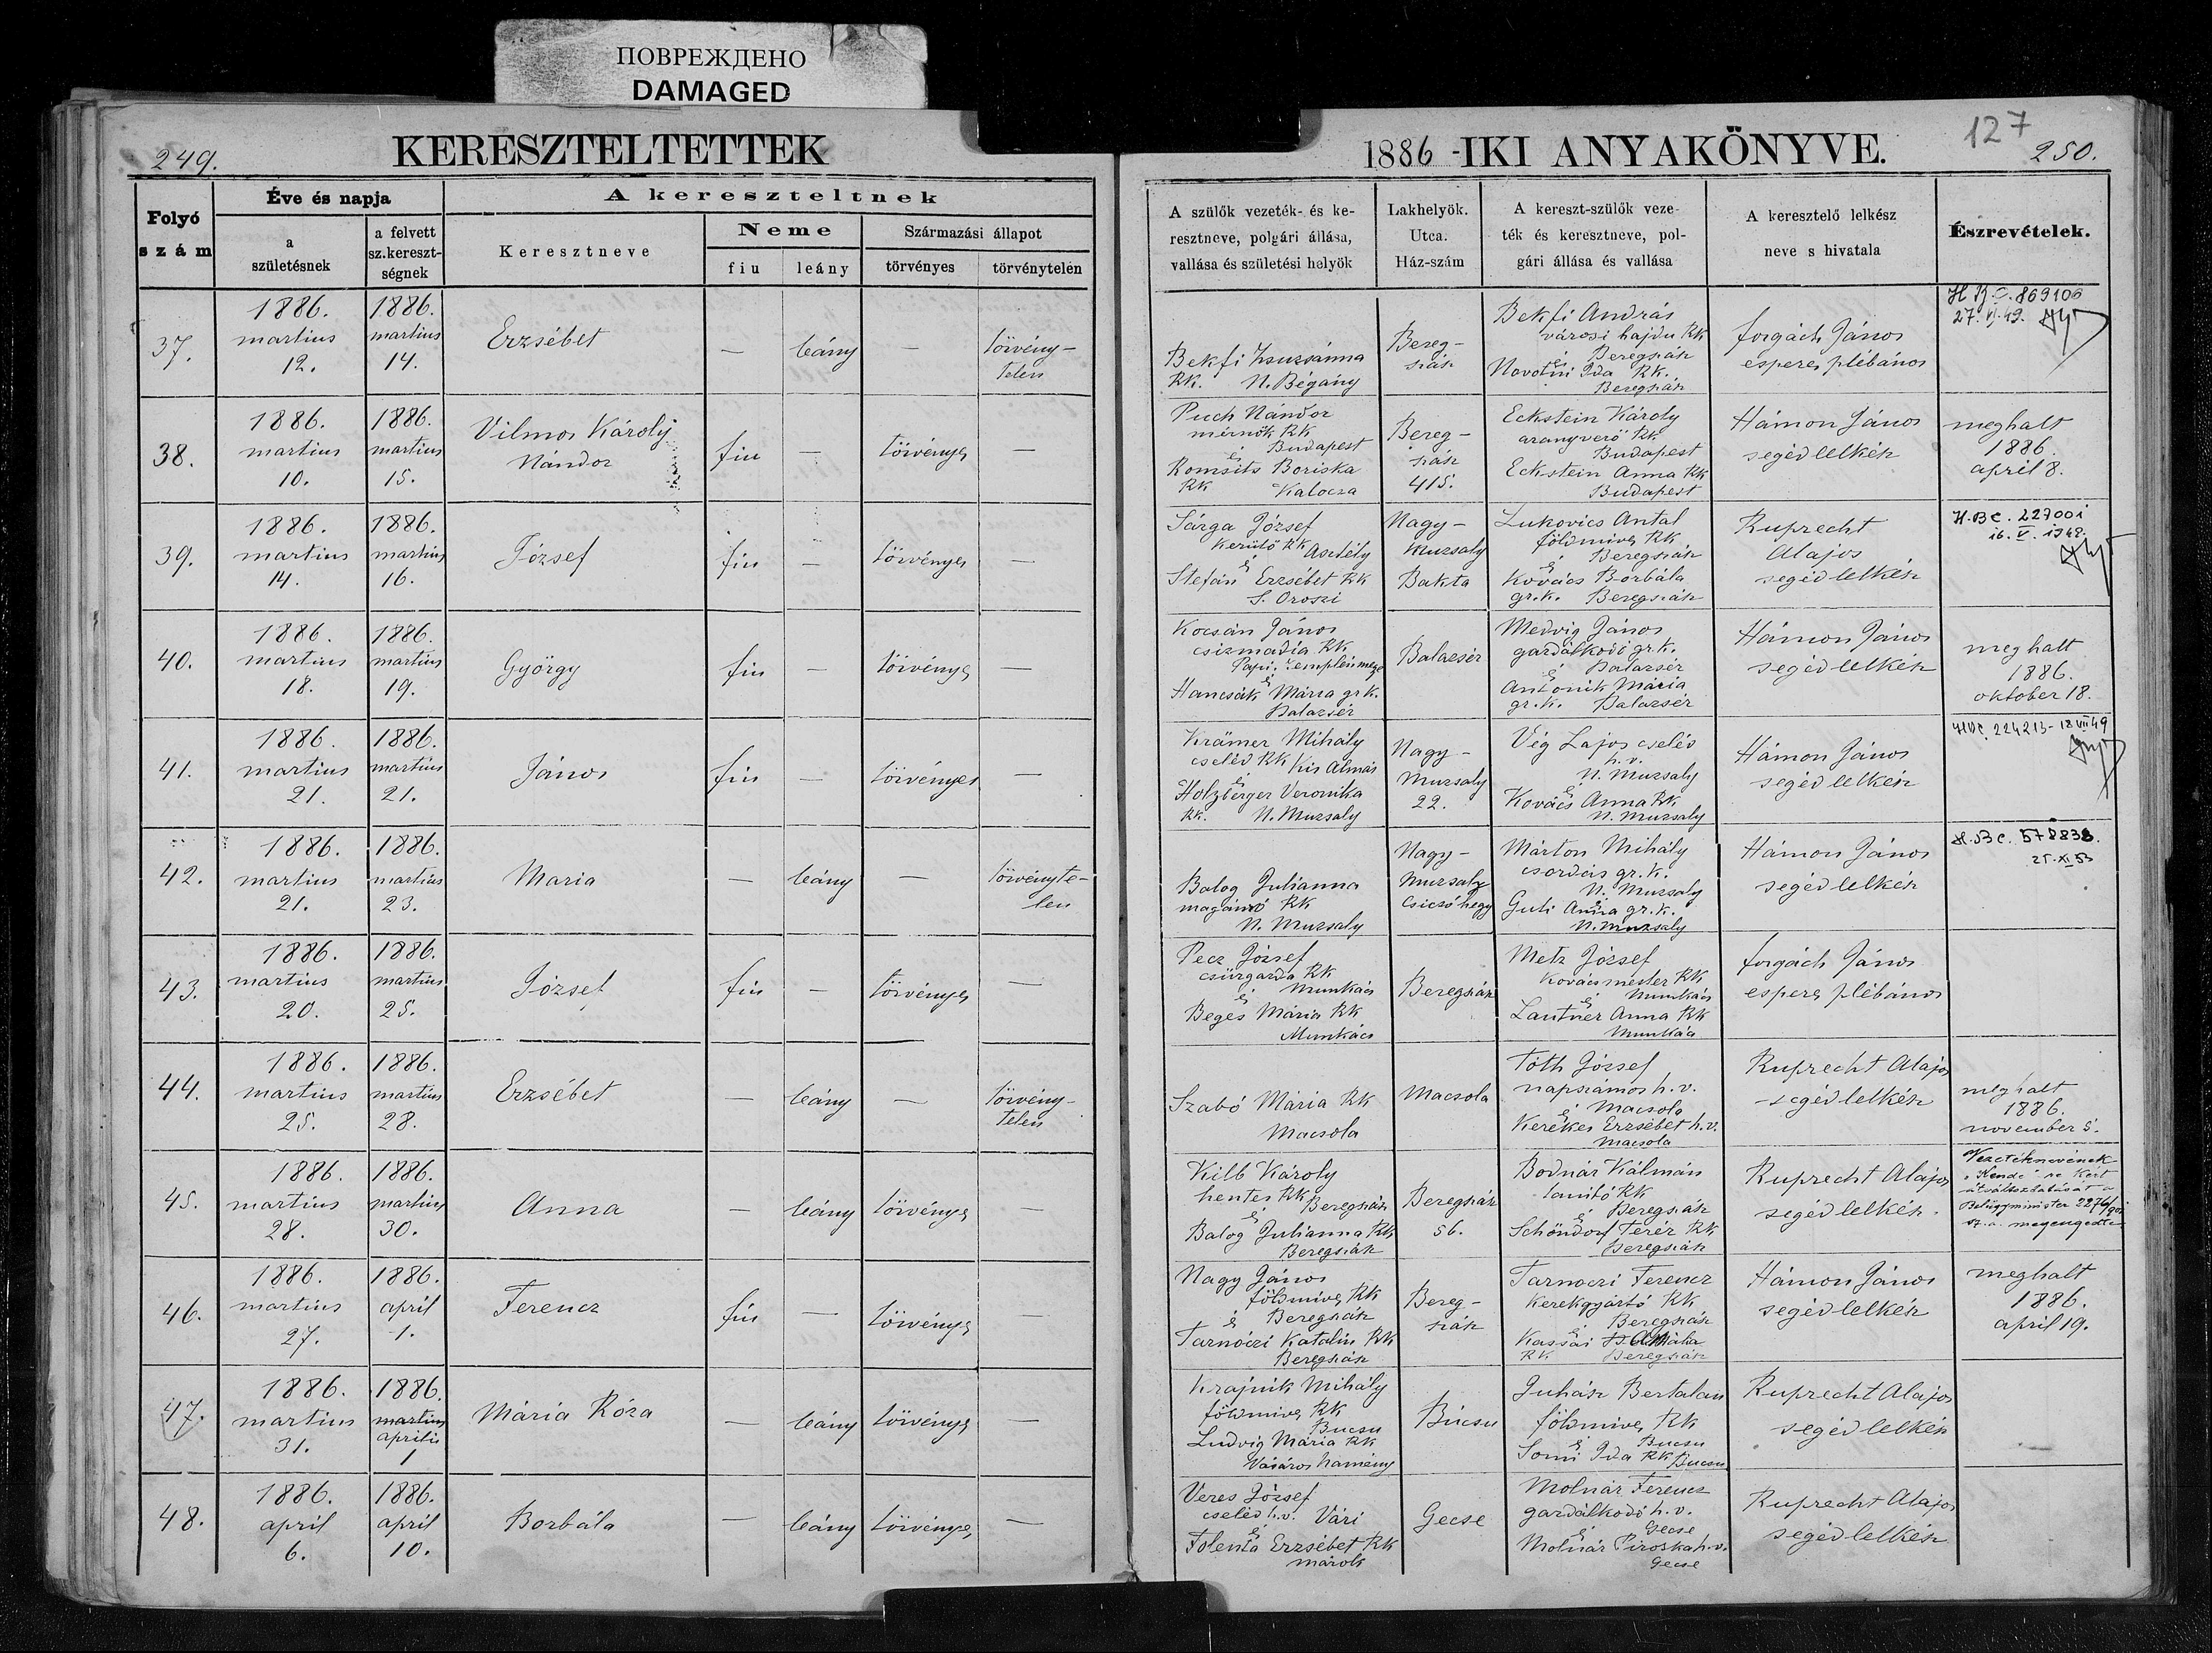 ПОВРЕЖДЕНО
DAMAGED
249.
KERESZTELTETTEK
Folyó szám
Éve és napja
a születésnek
a felvett sz.kereszt-ségnek
A kereszteltnek
Keresztneve
Neme
fiu
leány
Származási állapot
törvényes
törvénytelen
1886-IKI ANYAKÖNYVE.
127
250.
A szülők vezeték- és ke-
resztneve, polgári állása,
vallása és születési helyök
Lakhelyök.
Utca.
Ház-szám
A kereszt-szülők veze-
ték és keresztneve, pol-
gári állása és vallása
A keresztelő lelkész
neve s hivatala
Észrevételek.
37.
1886. martius 12.
1886. martius 14.
Erzsébet
—
leány
—
törvény-
telen
Bekfi Zsuzsánna
RK. N. Bégány
Bereg-
szász
Bekfi András
városi hajdu RK
és Beregszász
Novotni Ida RK.
Beregszász
forgách János
esperes plébános
H.B.C. 869106
27. VI. 49.
38.
1886. martius 10.
1886. martius 15.
Vilmos Károly
Nándor
fiu
—
törvényes
—
Puch Nándor
mérnök RK
és Budapest
Romsits Boriska
RK Kalocza
Bereg-
szász
415.
Eckstein Károly
aranyverő RK
Budapest
Eckstein Anna RK
Budapest
Hámon János
segédlelkész
meghalt
1886.
april 8.
39.
1886. martius 14.
1886. martius 16.
József
fiu
—
törvényes
—
Sárga József
kerülő RK Asztély
és
Stefán Erzsébet RK
S. Oroszi
Nagy-
Muzsaly
Bakta
Lukovics Antal
földmives RK
és Beregszász
Kovács Borbála
gr.k. Beregszász
Ruprecht
Alajos
segédlelkész
H.BC. 227001
16. V. 1948.
40.
1886. martius 18.
1886. martius 19.
György
fiu
—
törvényes
—
Kocsán János
csizmadia RK
Papi, Zemplénmegye
és
Hancsák Mária gr k.
Balazsér
Balazsér
Medvig János
gazdálkodó gr.k.
és Balazsér
Antonik Mária
gr.k. Balazsér
Hámon János
segédlelkész
meghalt
1886.
oktober 18.
41.
1886. martius 21.
1886. martius 21.
János
fiu
—
törvényes
—
Krämer Mihály
cseléd RK Kis Almás
és
Holzberger Veronika
RK. N. Muzsaly
Nagy-
Muzsaly
22.
Vég Lajos cseléd
h.v.
N. Muzsaly
és
Kovács Anna RK
N. Muzsaly
Hámon János
segédlelkész
224213 - 18 VII 49
42.
1886. martius 21.
1886. martius 23.
Maria
—
leány
—
törvényte-
len
Balog Julianna
magánzó RK
N. Muzsaly
Nagy-
Muzsaly
Csicsóhegy
Márton Mihály
csordás gr.k.
N. Muzsaly
és
Guti Anna gr.k.
N. Muzsaly
Hámon János
segédlelkész
H.BC. 578838.
25. XI 53
43.
1886. martius 20.
1886. martius 25.
József
fiu
—
törvényes
—
Pecz József
csűrgazda RK
és Munkács
Beges Mária RK
Munkács
Beregszász
Metz József
Kovácsmester RK
és Munkács
Lautner Anna RK
Munkács
forgách János
esperes plébános
44.
1886. martius 25.
1886. martius 28.
Erzsébet
—
leány
—
törvény-
telen
Szabó Mária RK
Macsola
Macsola
Tóth József
napszámos h.v.
és Macsola
Kerékes Erzsébet h.v.
Macsola
Ruprecht Alajos
segédlelkész
meghalt
1886.
november 5.
45.
1886. martius 28.
1886. martius 30.
Anna
—
leány
törvényes
—
Kilb Károly
hentes RK
és Beregszász
Balog Julianna RK
Beregszász
Beregszász
56.
Bodnár Kálmán
tanító RK
és Beregszász
Schöndorf Teréz RK
Beregszász
Ruprecht Alajos
segédlelkész.
Vezetéknevének
"Kende"-re kért
átváltoztatását a
Belügyminister
sz. a. megengedte
46.
1886. martius 27.
1886. april 1.
Ferencz
fiu
—
törvényes
—
Nagy János
földmives RK
és Beregszász
Tarnóczi Katalin RK
Beregszász
Bereg-
szász
Tarnoczi Ferencz
Kerekgyártó RK
és Beregszász
Kassai Amália
RK Beregszász
Hámon János
segédlelkész
meghalt
1886.
april 19.
47.
1886. martius 31.
1886. martius aprilis 1
Mária Róza
—
leány
törvényes
—
Krajnik Mihály
földmives RK
Bucsu
Ludvig Mária RK
Vásáros Namény
Búcsu
Juhász Bertalan
földmives RK
és Bucsu
Somi Ida RK Bucsu
Ruprecht Alajos
segédlelkész
48.
1886. april 6.
1886. april 10.
Borbála
—
leány
törvényes
—
Veres József
cseléd h.v. Vári
és
Folenta Erzsébet RK
márok
Gecse
Molnár Ferencz
gazdálkodó h.v.
és Gecse
Molnár Piroska h.v.
Gecse
Ruprecht Alajos
segédlelkész